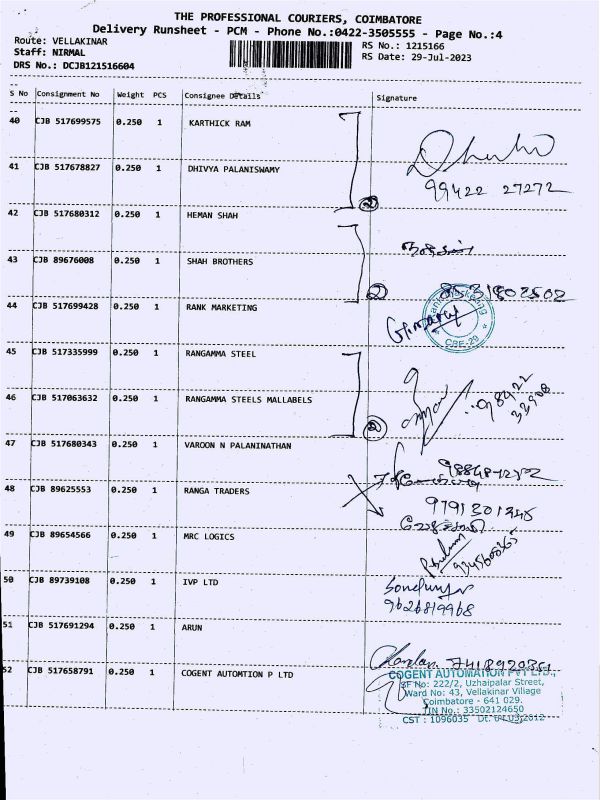 THE PROFESSIONAL COURIERS, COIMBATORE
Delivery Runsheet - PCM - Phone No.:0422-3505555 - Page No.:4
Route: VELLAKINAR
RS No.: 1215166
Staff: NIRMAL
RS Date: 29-Jul-2023
DRS No.: DCJB121516604
S No Consignment No Weight PCS Consignee Details Signature
40 CJB 517699575 0.250 1 KARTHICK RAM
41 CJB 517678827 0.250 1 DHIVYA PALANISWAMY
99422 27272
2
42 CJB 517680312 0.250 1 HEMAN SHAH
43 CJB 89676008 0.250 1 SHAH BROTHERS
2
8531802502
44 CJB 517699428 0.250 1 RANK MARKETING
CBE-29
45 CJB 517335999 0.250 1 RANGAMMA STEEL
46 CJB 517063632 0.250 1 RANGAMMA STEELS MALLABELS
2
47 CJB 517680343 0.250 1 VAROON N PALANINATHAN
48 CJB 89625553 0.250 1 RANGA TRADERS
9791301345
49 CJB 89654566 0.250 1 MRC LOGICS
50 CJB 89739108 0.250 1 IVP LTD
9626819968
51 CJB 517691294 0.250 1 ARUN
52 CJB 517658791 0.250 1 COGENT AUTOMTION P LTD
COGENT AUTOMATION PVT LTD.,
SF No: 222/2, Uzhaipalar Street,
Ward No: 43, Vellakinar Village
Coimbatore - 641 029.
TIN No.: 33502124650
CST : 1096035 Dt. 04.03.2012